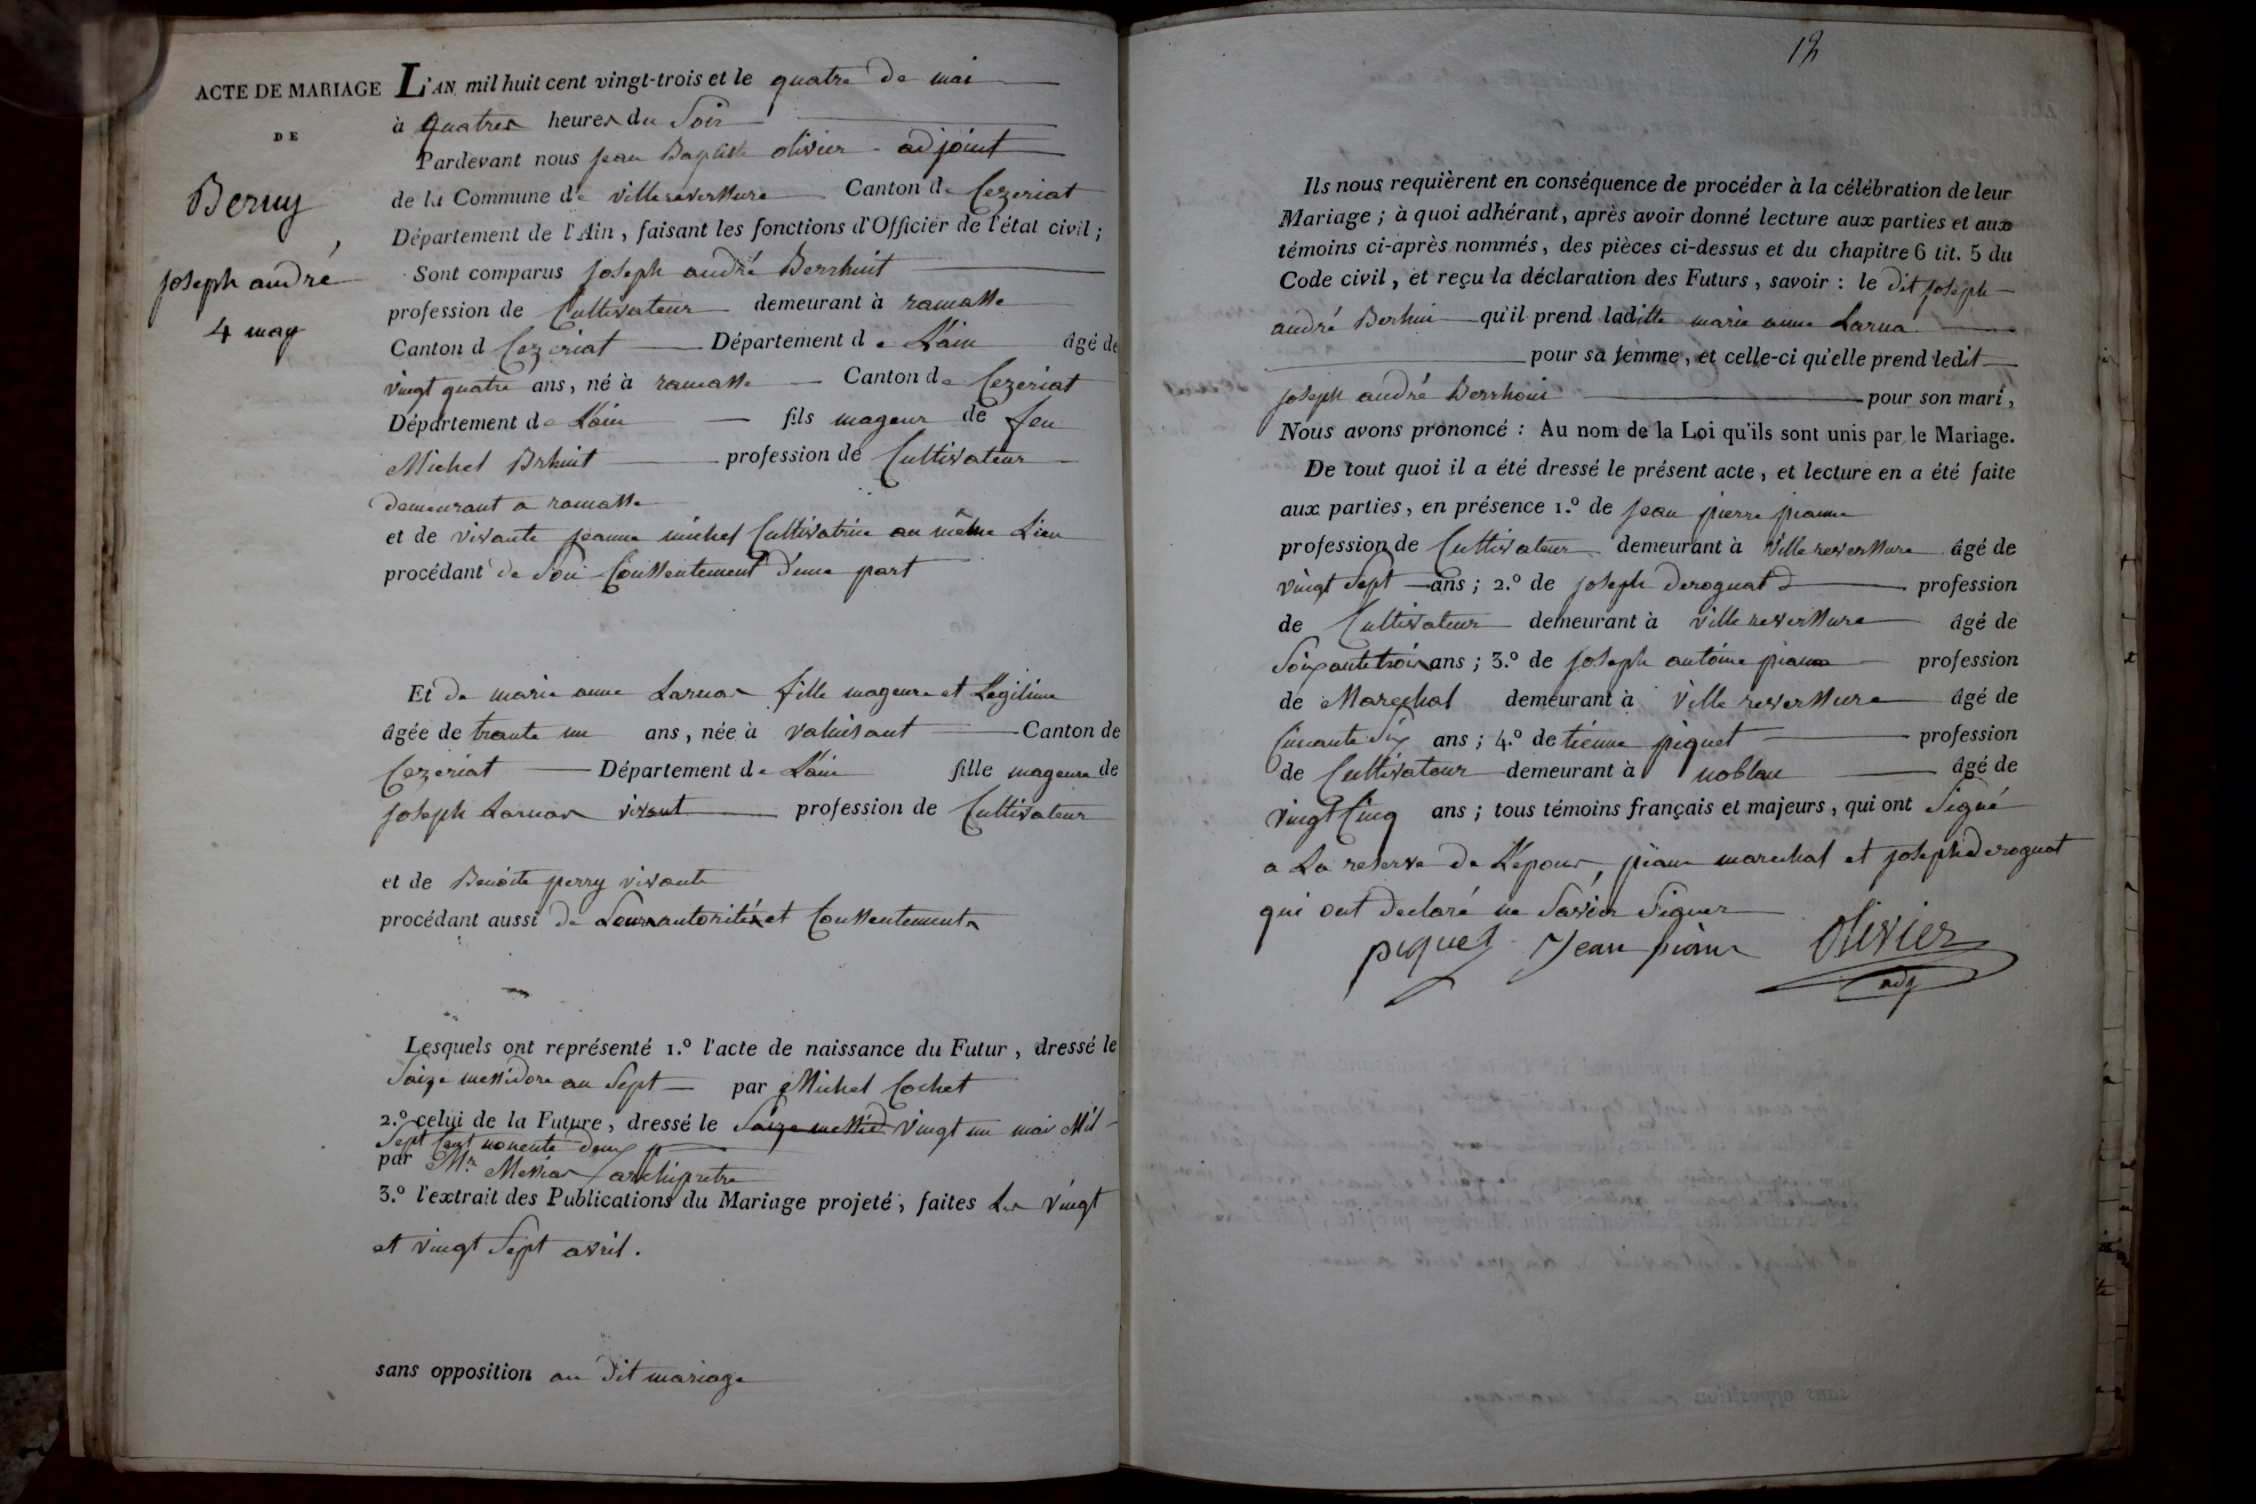 ACTE DE MARIAGE
DE
Beruy
Joseph andré
4 may
L'AN mil huit cent vingt-trois et le quatre de mai
à quatres heures du Soir
Pardevant nous jean Baptiste olivier adjoint
de la Commune de villereversure Canton de Cezeriat
Département de l'Ain, faisant les fonctions d'Officier de l'état civil;
Sont comparus joseph andré Berrhuit
profession de Cultivateur demeurant à ramasse
Canton d Cezeriat Département d e L'ain âgé de
vingt quatre ans, né à ramasse Canton de Cezeriat
Département de L'ain fils mageur de feu
Michel Brhuit profession de Cultivateur
demeurant a ramasse
et de vivante jeanne michel Cultivatrice au même Lieu
procédant de Son Conssentement d'une part
Et de marie anne Laruas fille mageure et Légitime
âgée de trante un ans, née à valuisant Canton de
Cezeriat Département de L'ain fille mageure de
joseph Laruas vivant profession de Cultivateur
et de Benoite perry vivante
procédant aussi de Leurs autorités et Conssentements
Lesquels ont représenté 1.º l'acte de naissance du Futur, dressé le
Saize messidore an Sept par Michel Cochet
2.º celui de la Future, dressé le Saize messid vingt un mai Mil
Sept Cent nonente deux
par Mr. Messias archipretre
3.º l'extrait des Publications du Mariage projeté, faites Les vingt
et vingt Sept avril.
sans opposition au dit mariage
12
Ils nous requièrent en conséquence de procéder à la célébration de leur
Mariage; à quoi adhérant, après avoir donné lecture aux parties et aux
témoins ci-après nommés, des pièces ci-dessus et du chapitre 6 tit. 5 du
Code civil, et reçu la déclaration des Futurs, savoir: le dit joseph
andré Berhui qu'il prend laditte marie anne Larua
pour sa femme, et celle-ci qu'elle prend ledit
joseph andré Berrhoui pour son mari,
Nous avons prononcé: Au nom de la Loi qu'ils sont unis par le Mariage.
De tout quoi il a été dressé le présent acte, et lecture en a été faite
aux parties, en présence 1.º de jean pierre pianne
profession de Cultivateur demeurant à villereverssure âgé de
vingt Sept ans; 2.º de joseph deroguat profession
de Cultivateur demeurant à villereverssure âgé de
Soixante trois ans; 3.º de joseph antoine piane profession
de Marechal demeurant à villereverssure âgé de
Cincante Six ans; 4.º de tienne piquet profession
de Cultivateur demeurant à noblan âgé de
vingt Cinq ans; tous témoins français et majeurs, qui ont Signé
a La reserve de L'epoux, piane marechal et joseph deroguat
qui ont declaré ne Savoir Signer
piquet Jean piane olivier
adj